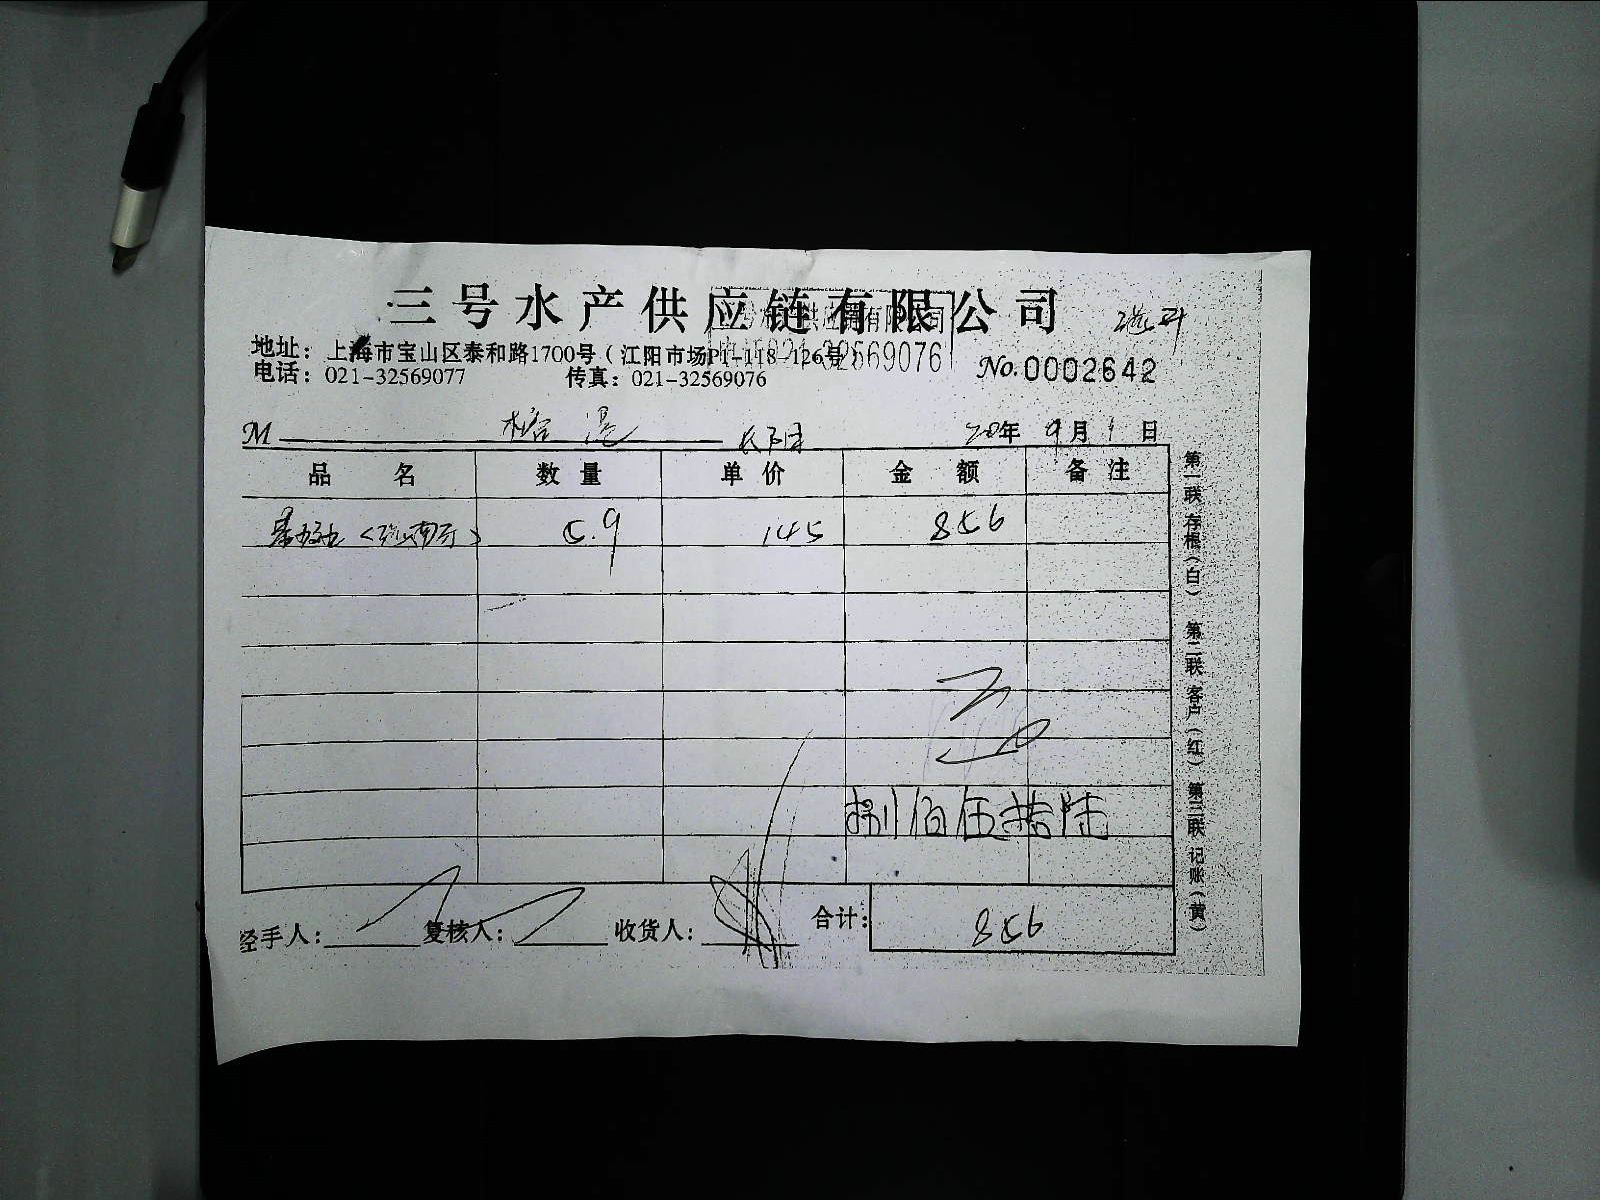 三号水产供应链有限公司
地址：上海市宝山区泰和路1700号（江阳市场P1-118-126号）
电话：021-32569077 传真：021-32569076
021-32569076
No.0002642
M 20年9月1日
品名 数量 单价 金额 备注
5.9 145 856
捌佰伍拾陆
经手人： 复核人： 收货人： 合计： 856
第一联 存根（白） 第二联 客户（红） 第三联 记账（黄）